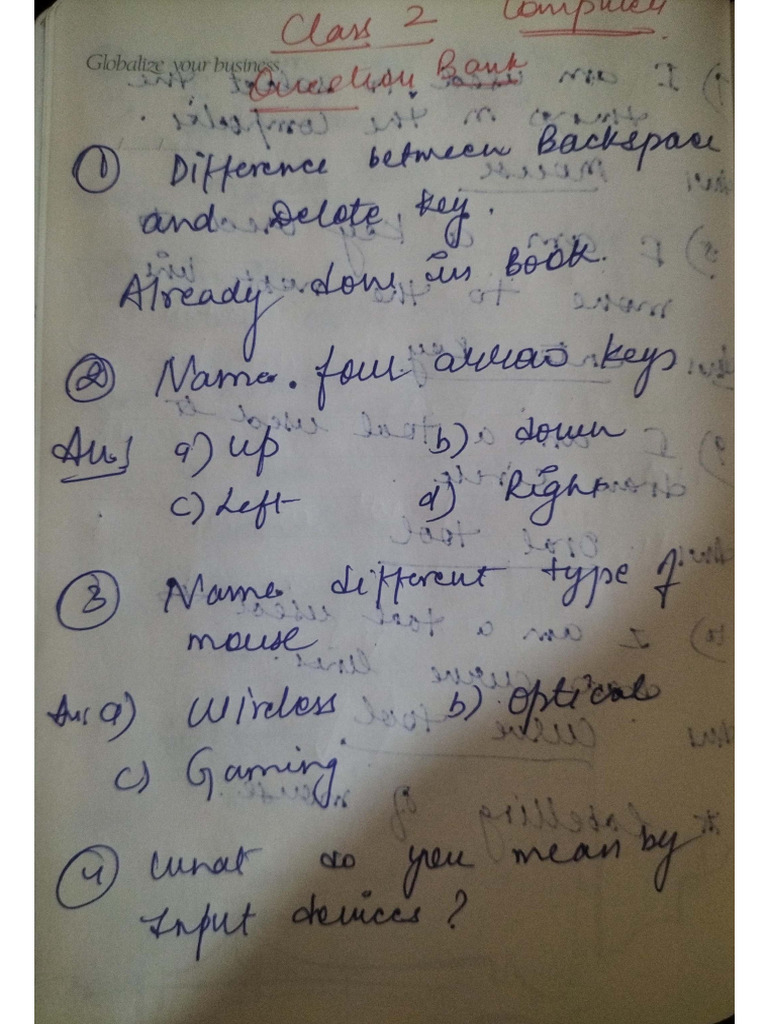 Class 2 Computer
Globalize your business
Question Bank
① Difference between Backspace
and Delete key.
Already done in Book.
② Name four arrow keys
Ans a) up b) down
c) Left d) Right
③ Name different type of
mouse
Ans a) Wireless b) optical
c) Gaming
④ What do you mean by
Input devices?